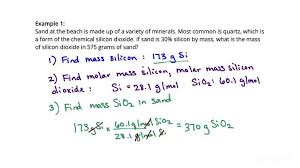 Example 1:
Sand at the beach is made up of a variety of minerals. Most common is quartz, which is
a form of the chemical silicon dioxide. If sand is 30% silicon by mass, what is the mass
of silicon dioxide in 575 grams of sand?
1) Find mass silicon : 173 g Si
2) Find molar mass silicon, molar mass silicon
dioxide : Si = 28.1 g/mol SiO₂: 60.1 g/mol
3) Find mass SiO₂ in sand
173 g Si x 60.1 g/mol SiO₂ / 28.1 g/mol Si = 370 g SiO₂